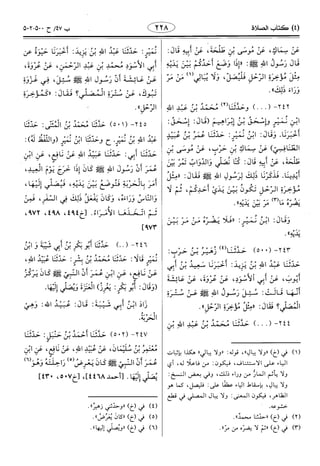 (٤) كتاب الصلاة
٢٢٨
ب ٤٧/ ح ٥٠٠-٥٠٢
عَنْ سِمَاكٍ، عَنْ مُوسَى بْنِ طَلْحَةَ، عَنْ أَبِيهِ قَالَ:
قَالَ رَسُولُ اللهِ ﷺ: «إِذَا وَضَعَ أَحَدُكُمْ بَيْنَ يَدَيْهِ
مِثْلَ مُؤْخِرَةِ الرَّحْلِ فَلْيُصَلِّ، وَلَا يُبَالِي(١) مَنْ مَرَّ
وَرَاءَ ذٰلِكَ».
٢٤٢-(...) وحَدَّثَنَا(٢) مُحَمَّدُ بْنُ عَبْدِ اللهِ
ابْنِ نُمَيْرٍ وَإِسْحٰقُ بْنُ إِبْرَاهِيمَ (قَالَ: إِسْحٰقُ:
أَخْبَرَنَا. وَقَالَ: ابْنُ نُمَيْرٍ: حَدَّثَنَا عُمَرُ بْنُ عُبَيْدٍ
الطَّنَافِسِيُّ) عَنْ سِمَاكِ بْنِ حَرْبٍ، عَنْ مُوسَى بْنِ
طَلْحَةَ، عَنْ أَبِيهِ قَالَ: كُنَّا نُصَلِّي وَالدَّوَابُّ تَمُرُّ بَيْنَ
أَيْدِينَا، فَذَكَرْنَا ذٰلِكَ لِرَسُولِ اللهِ ﷺ فَقَالَ: «مِثْلُ
مُؤْخِرَةِ الرَّحْلِ تَكُونُ بَيْنَ يَدَيْ أَحَدِكُمْ، ثُمَّ لَا
يَضُرُّهُ مَا(٣) مَرَّ بَيْنَ يَدَيْهِ».
وَقَالَ: ابْنُ نُمَيْرٍ: «فَلَا يَضُرُّهُ مَنْ مَرَّ بَيْنَ
يَدَيْهِ».
٢٤٣-(٥٠٠) حَدَّثَنَا(٤) زُهَيْرُ بْنُ حَرْبٍ:
حَدَّثَنَا عَبْدُ اللهِ بْنُ يَزِيدَ: أَخْبَرَنَا سَعِيدُ بْنُ أَبِي
أَيُّوبَ، عَنْ أَبِي الْأَسْوَدِ، عَنْ عُرْوَةَ، عَنْ عَائِشَةَ
أَنَّهَا قَالَتْ: سُئِلَ رَسُولُ اللهِ ﷺ عَنْ سُتْرَةِ
الْمُصَلِّي؟ فَقَالَ: «مِثْلُ مُؤْخِرَةِ الرَّحْلِ».
٢٤٤-(...) حَدَّثَنَا مُحَمَّدُ بْنُ عَبْدِ اللهِ بْنِ
نُمَيْرٍ: حَدَّثَنَا عَبْدُ اللهِ بْنُ يَزِيدَ: أَخْبَرَنَا حَيْوَةُ عَنْ
أَبِي الْأَسْوَدِ مُحَمَّدِ بْنِ عَبْدِ الرَّحْمٰنِ، عَنْ عُرْوَةَ،
عَنْ عَائِشَةَ أَنَّ رَسُولَ اللهِ ﷺ سُئِلَ، فِي غَزْوَةِ
تَبُوكَ، عَنْ سُتْرَةِ الْمُصَلِّي؟ فَقَالَ: «كَمُؤْخِرَةِ
الرَّحْلِ».
٢٤٥-(٥٠١) حَدَّثَنَا مُحَمَّدُ بْنُ الْمُثَنَّى: حَدَّثَنَا
عَبْدُ اللهِ بْنُ نُمَيْرٍ. ح وحَدَّثَنَا ابْنُ نُمَيْرٍ (وَاللَّفْظُ لَهُ):
حَدَّثَنَا أَبِي: حَدَّثَنَا عُبَيْدُ اللهِ عَنْ نَافِعٍ، عَنِ ابْنِ
عُمَرَ أَنَّ رَسُولَ اللهِ ﷺ كَانَ إِذَا خَرَجَ يَوْمَ الْعِيدِ،
أَمَرَ بِالْحَرْبَةِ فَتُوضَعُ بَيْنَ يَدَيْهِ، فَيُصَلِّي إِلَيْهَا،
وَالنَّاسُ وَرَاءَهُ، وَكَانَ يَفْعَلُ ذٰلِكَ فِي السَّفَرِ، فَمِنْ
ثَمَّ اتَّخَذَهَا الْأُمَرَاءُ. [خ٤٩٤، ٤٩٨، ٩٧٢،
٩٧٣]
٢٤٦-(...) حَدَّثَنَا أَبُو بَكْرِ بْنُ أَبِي شَيْبَةَ وَابْنُ
نُمَيْرٍ قَالَا: حَدَّثَنَا مُحَمَّدُ بْنُ بِشْرٍ: حَدَّثَنَا عُبَيْدُ اللهِ
عَنْ نَافِعٍ، عَنِ ابْنِ عُمَرَ أَنَّ النَّبِيَّ ﷺ كَانَ يَرْكُزُ
(وَقَالَ: أَبُو بَكْرٍ: يَغْرِزُ) الْعَنَزَةَ وَيُصَلِّي إِلَيْهَا.
زَادَ ابْنُ أَبِي شَيْبَةَ: قَالَ: عُبَيْدُ اللهِ: وَهِيَ
الْحَرْبَةُ.
٢٤٧-(٥٠٢) حَدَّثَنَا أَحْمَدُ بْنُ حَنْبَلٍ: حَدَّثَنَا
مُعْتَمِرُ بْنُ سُلَيْمَانَ، عَنْ عُبَيْدِ اللهِ، عَنْ نَافِعٍ، عَنِ ابْنِ
عُمَرَ أَنَّ النَّبِيَّ ﷺ كَانَ يَعْرِضُ(٥) رَاحِلَتَهُ وَهُوَ(٦)
يُصَلِّي إِلَيْهَا. [أحمد ٤٤٦٨، خ٥٠٧، ٤٣٠]
(١) في (خ) «ولا يبالِ»، قوله: «ولا يبالي» هكذا بإثبات
الياء على الاستئناف، فيكون: من فاعلًا له، أي
لا يأثم المارُّ من وراء ذلك، وفي بعض النسخ:
ولا يبال، بإسقاط الياء عطفًا على: فليصل، كما هو
الظاهر، فيكون المعنى: ولا يبال المصلي في قطع
خشوعه.
(٢) في (خ) «حدّثنا محمد».
(٣) في (خ) «ثم لا يضره من مرّ».
(٤) في (خ) «وحدثني زهير».
(٥) في (خ) «كان يُعرِّضُ».
(٦) في (خ) «ويصلي إليها».